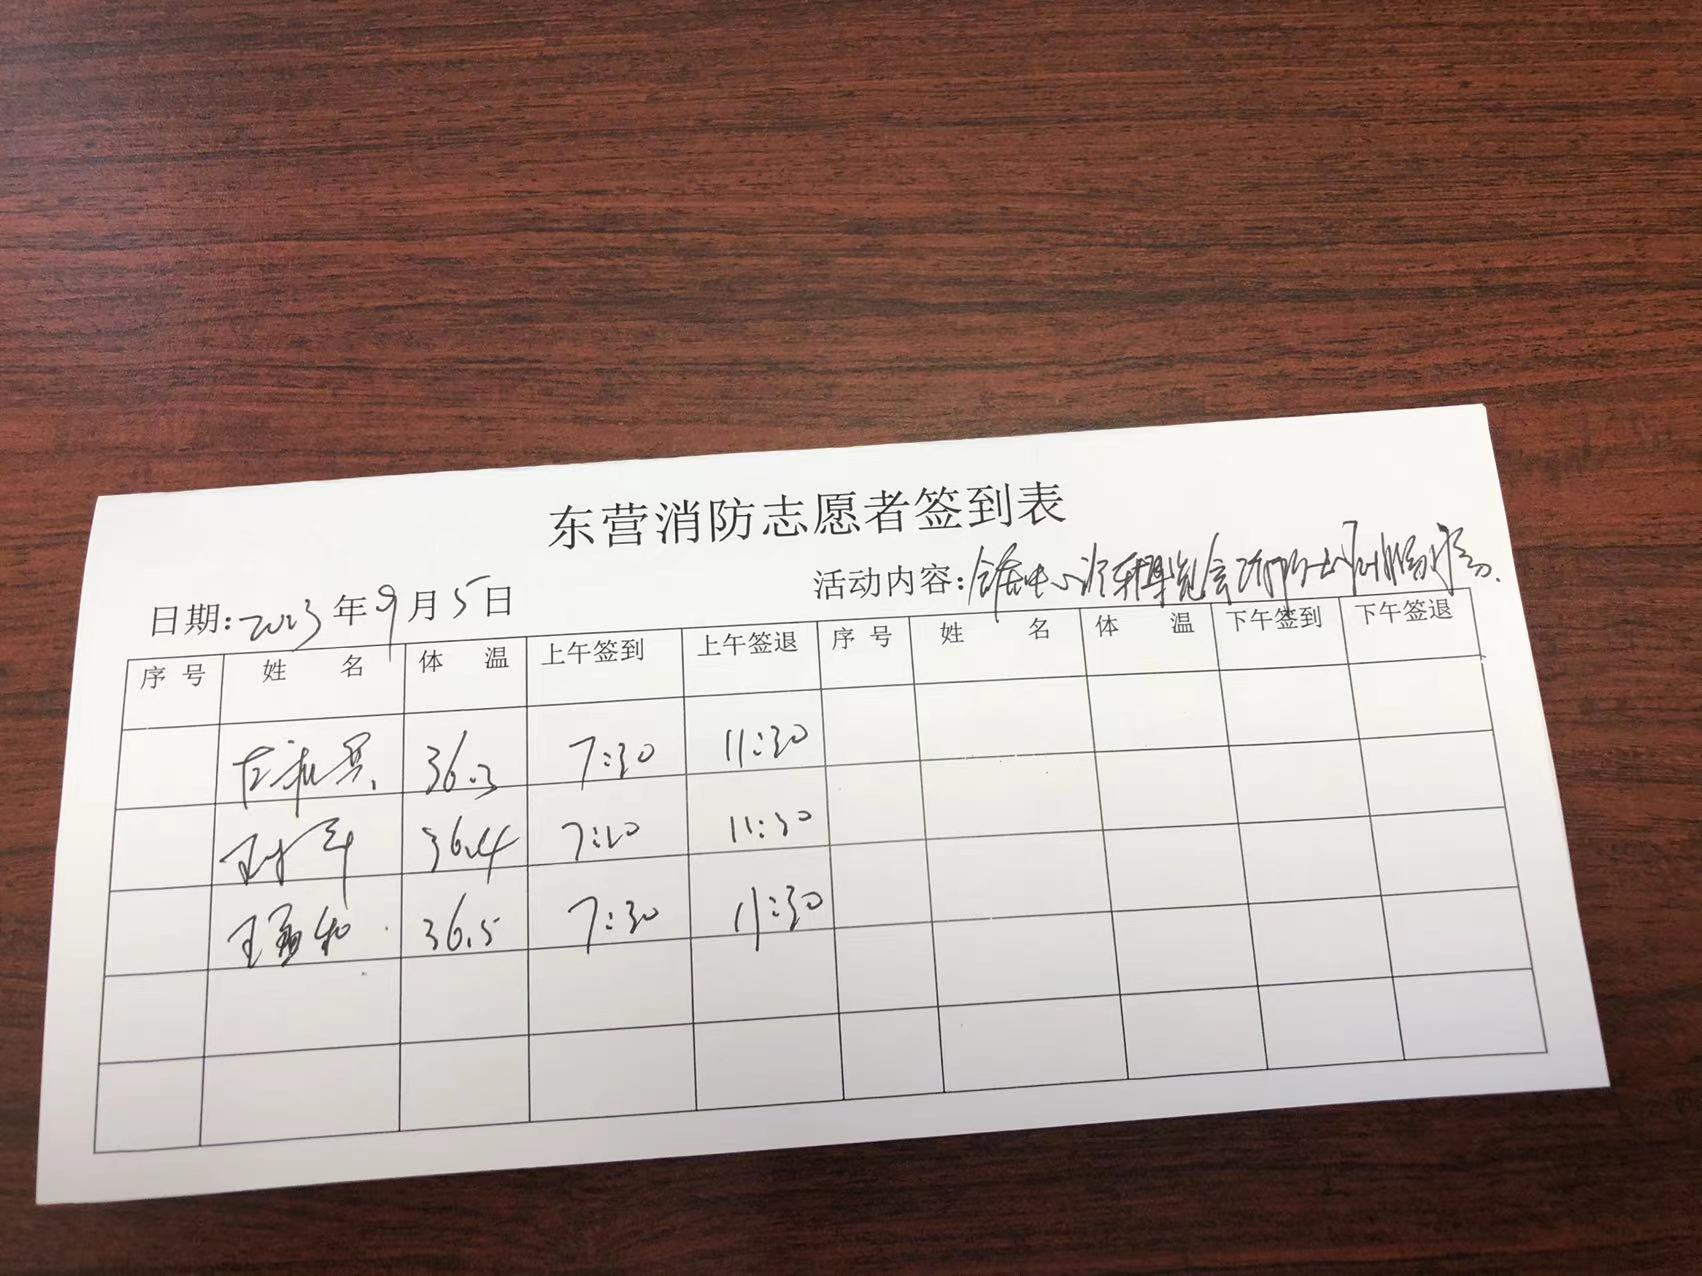 东营消防志愿者签到表
日期:2023年9月5日 活动内容:会展中心汽车博览会消防
序号 姓名 体温 上午签到 上午签退 序号 姓名 体温 下午签到 下午签退
36.3 7:30 11:30
36.4 7:20 11:30
王 36.5 7:30 11:30